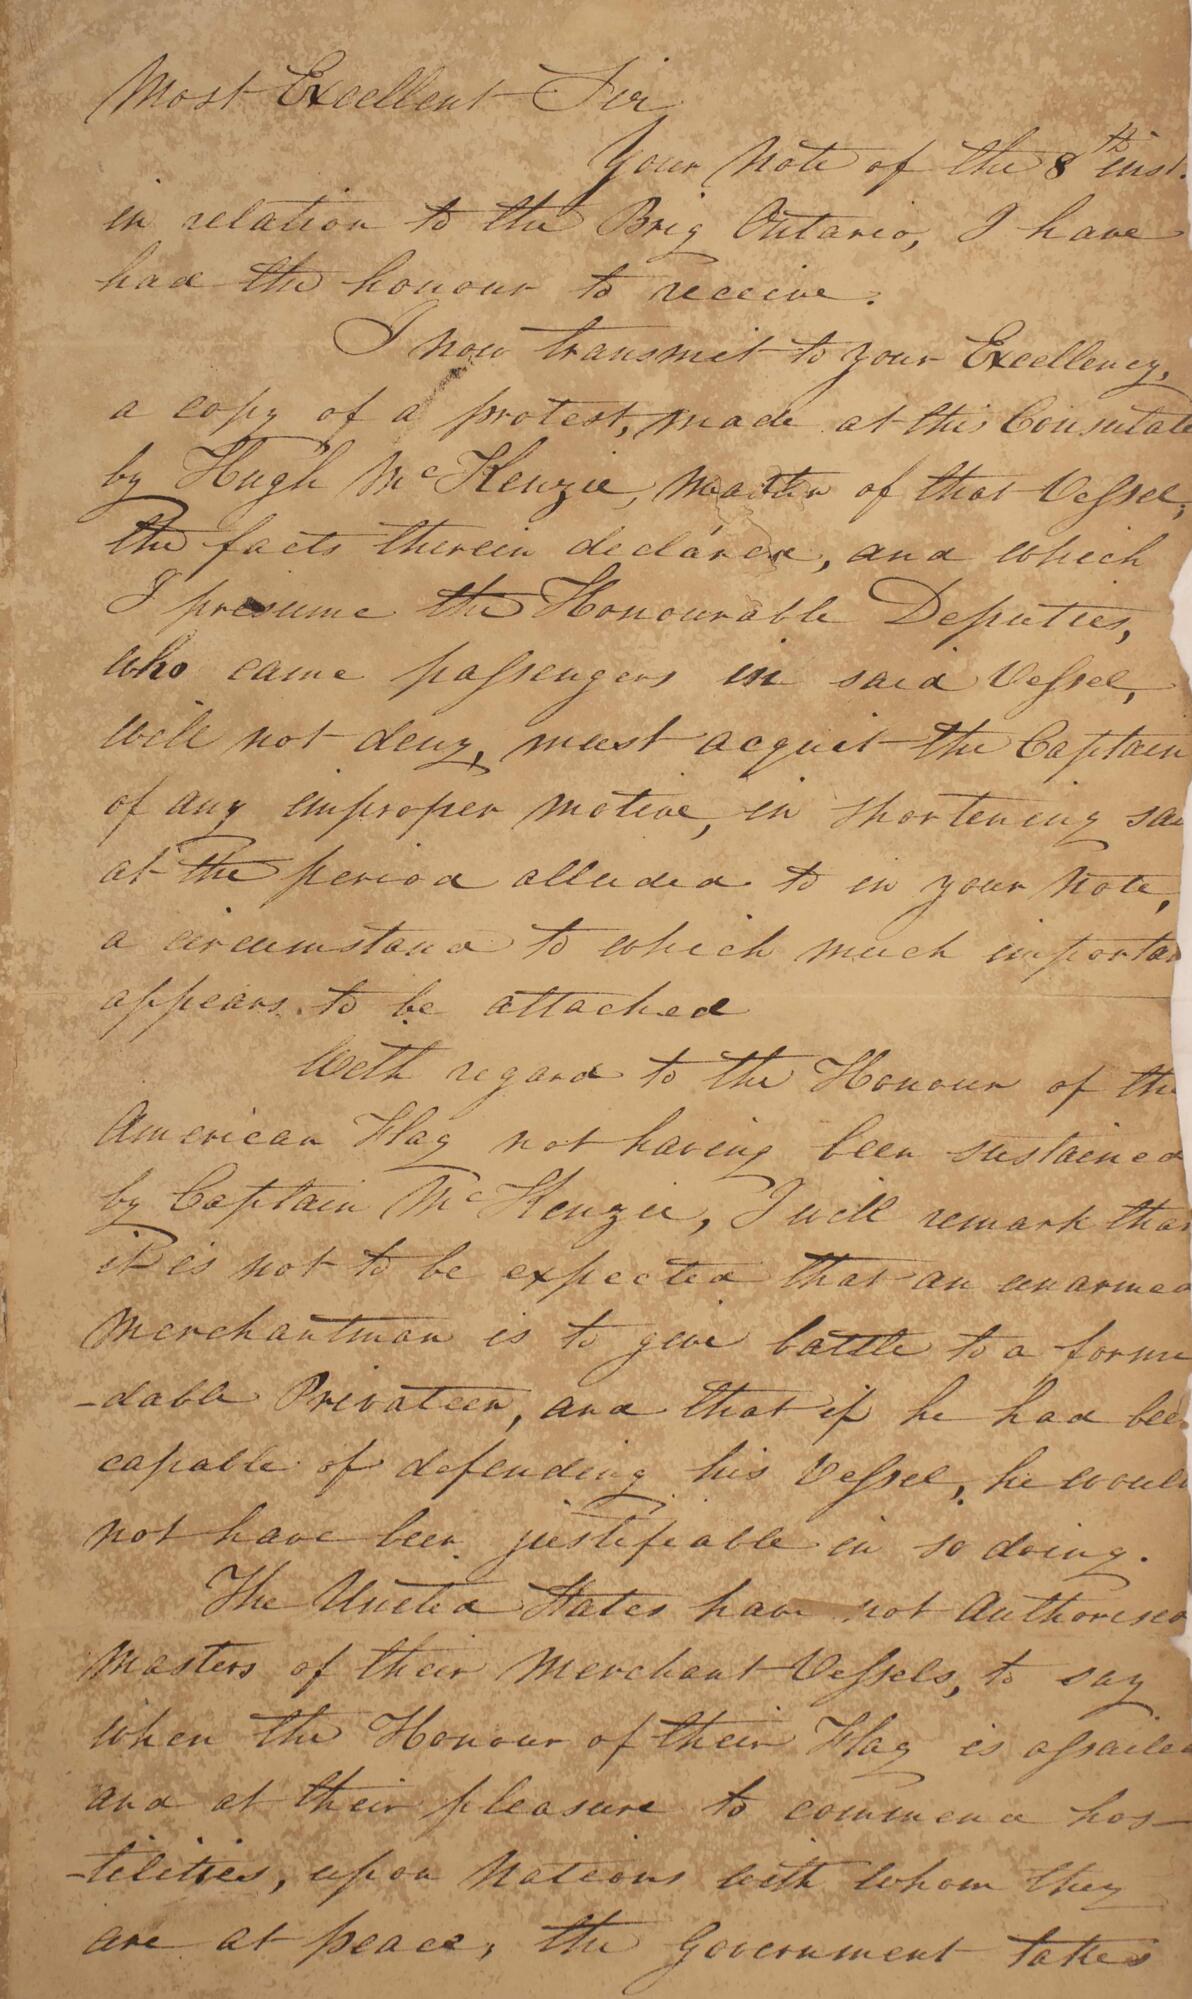 Most Excellent Sir
Your Note of the 8th inst.
in relation to the Brig Ontario, I have
had the honour to receive.
I now transmit to your Excellency,
a copy of a protest, made at this Consulate
by Hugh McKenzie, Master of that Vessel,
The facts therein declared, and which
I presume the Honourable Deputies,
who came passengers in said Vessel,
will not deny, must acquit the Captain
of any improper motive, in shortening sai
at the period alluded to in your Note,
a circumstance to which much importan
appears to be attached
With regard to the Honour of the
American Flag not having been sustained
by Captain McKenzie, I will remark that
it is not to be expected that an unarmed
Merchantman is to give battle to a formi
-dable Privateer, and that if he had been
capable of defending his Vessel, he would
not have been justifiable in so doing.
The United States have not Authorised
Masters of their Merchant Vessels, to say
when the Honour of their Flag is assailed
and at their pleasure to commence hos-
-tilities, upon Nations with whom they
are at peace, the Government takes